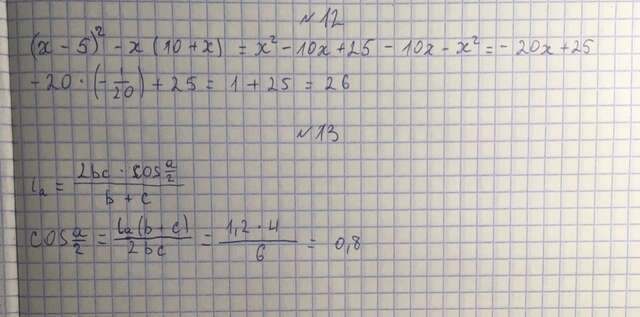 №12
(x - 5)² - x (10 + x) = x² - 10x + 25 - 10x - x² = - 20x + 25
-20 · (-1/20) + 25 = 1 + 25 = 26
№13
lₐ = 2bc · cos a/2 / b + c
cos a/2 = lₐ(b + c) / 2bc = 1,2 · 4 / 6 = 0,8